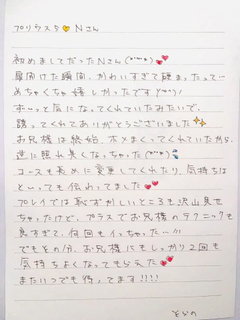 プリウス5💛Nさん
初めましてだったNさん(*´`*)💕
扉開けた瞬間、かわいすぎて酔まったって…
めちゃくちゃ嬉しかったです(*´`*)
ずーっと気になってくれていたみたいで、
誘ってくれてありがとうございました✨
お兄様は終始、ホメまくってくれていたから、
逆に照れ臭くなっちゃった(*´`*)💦
コースも長めに変更してくれたり、気持ちは
といっても伝わってました💕
プレイでは恥ずかしいところも沢山見せ
ちゃったけど、プラスでお兄様のテクニックも
良すぎて、何回もイっちゃった…///
でもその分、お兄様にもしっかり2回も
気持ちよくなってもらえた💕
またいつでも待ってます!!!!